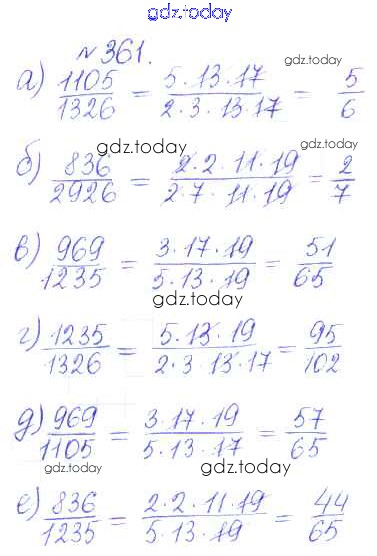 gdz.today
№ 361.
gdz.today
а) 1105/1326 = 5·13·17/2·3·13·17 = 5/6
gdz.today
б) 836/2926 = 2·2·11·19/2·7·11·19 = 2/7
в) 969/1235 = 3·17·19/5·13·19 = 51/65
gdz.today
г) 1235/1326 = 5·13·19/2·3·13·17 = 95/102
д) 969/1105 = 3·17·19/5·13·17 = 57/65
gdz.today gdz.today
е) 836/1235 = 2·2·11·19/5·13·19 = 44/65